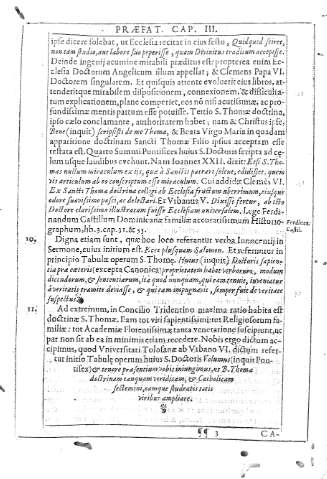 PRÆFAT. CAP. III.
ipse dicere solebat, ut Ecclesia recitat in eius festo, Quidquid sciret,
non tam studio, aut labore suo peperisse, quam Divinitus traditum accepisse.
Deinde ingenij acumine mirabili præditus est: propterea enim Ec-
clesia Doctorem Angelicum illum appellat; & Clemens Papa VI.
Doctorem singularem. Et quisquis attente evolverit eius libros, at-
tenderitque mirabilem dispositionem, connexionem, & difficulta-
tum explicationem, plane comperiet, eos nô nisi acutissimæ, ac pro-
fundissimæ mentis partum esse potuisse. Tertio S. Thomæ doctrina,
ipso cælo conclamante, authoritatem habet; nam & Christus ipse,
Bene (inquit) scripsisti de me Thoma, & Beata Virgo Maria in quadam
apparitione doctrinam Sancti Thomæ Filio ipsius acceptam esse
testata est. Quarto Summi Pontifices huius S. Doctoris scripta ad cœ-
lum usque laudibus evehunt. Nam Ioannes XXII. dixit: Etsi S. Tho-
mas nullum miraculum
vis articulum ab eo conscriptum esse miraculum. Cui addidit Clemês VI.
Ex Sancti Thomæ doctrina
odore suavissimo pasci, ac delectari. Et Vrbanus V.
Doctore clarissimo illustratam fuisse Ecclesiam universalem. Lege Ferdi-
nandum Castillum Dominicanæ familiæ accuratissimum Historio-
graphum, lib. 3. cap. 31. & 33.
10. Digna etiam sunt, quę hoc loco referantur verba Innocentij in
Sermone, cuius initium est: Ecce plusquam Salomon. Et referuntur in
principio Tabulæ operum S. Thomæ. Huius (inquit) Doctoris sapien-
tia præ cæteris (excepta Canonica) proprietatem habet verborum, modum
dicendorum, & sententiarum, ita quod nunquam, qui eam tenuit, inveniatur
à veritatis tramite deviasse, & qui eam impugnavit, semper fuit de veritate
suspectus.
11. Ad extremum, in Concilio Tridentino maxima ratio habita est
doctrinæ S. Thomæ. Eam tot viri sapientissimi: tot Religiosorum fa-
miliæ: tot Academiæ Florentissimæ tanta veneratione suscipiunt, ut
par non sit ab ea in minimis etiam recedere. Nobis ergo dictum ac-
cipimus, quod Vniversitati Tolosanæ ab Vrbano VI. dictum refer-
tur initio Tabulę operum huius S. Doctoris: Volumus (inquit Pon-
tifex) & tenore præsentium vobis iniungimus, ut B. Thomæ
doctrinam tanquam veridicam, & Catholicam
sectemini, eamque studeatis totis
viribus ampliare.
3 CA-